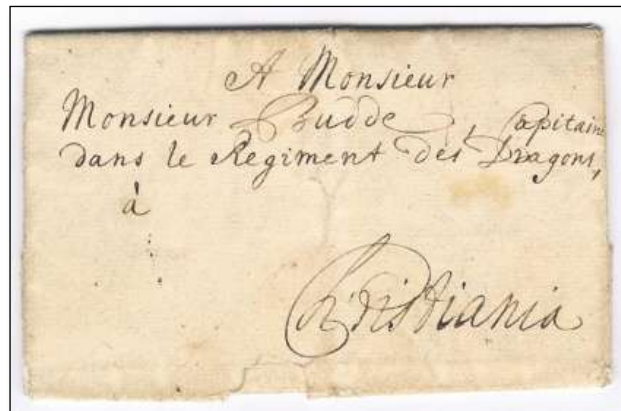 A Monsieur
Monsieur Budde, Capitaine
dans le Regiment des Dragons,
à
Christiania